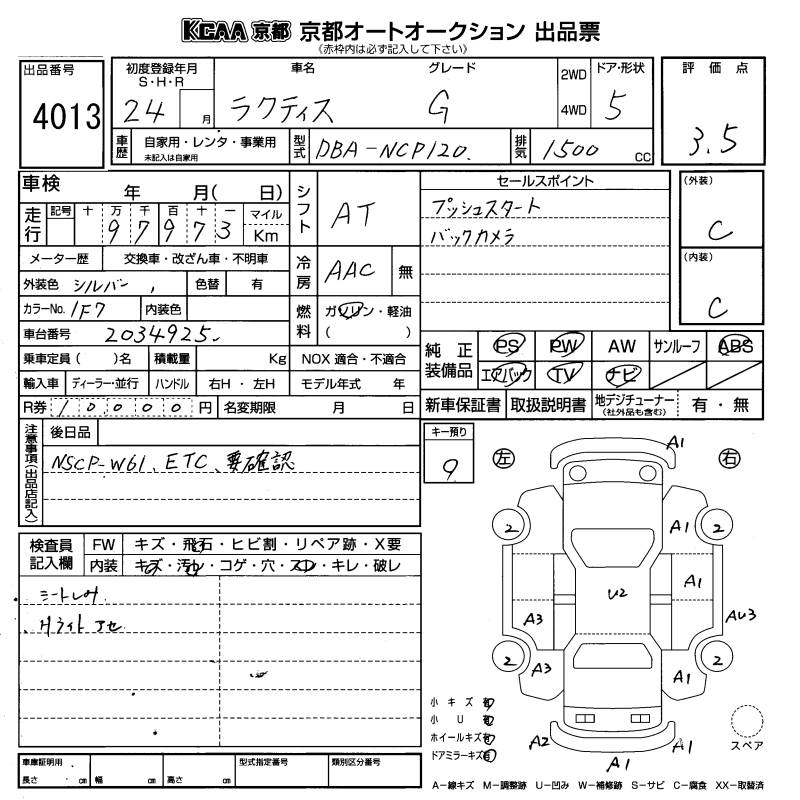 KCAA 京都 京都オートオークション 出品票
(赤枠内は必ず記入して下さい)
出品番号
4013
初度登録年月
S・H・R
24 月
車名
ラクティス
グレード
G
2WD
4WD
ドア・形状
5
評価点
3.5
車歴
自家用・レンタ・事業用
未記入は自家用
型式
DBA-NCP120
排気
1500 CC
車検 年 月( 日)
走行
記号 十 万 千 百 十 一 マイル
9 7 9 7 3 Km
メーター歴 交換車・改ざん車・不明車
外装色 シルバー 色替 有
カラーNo. 1F7 内装色
車台番号 2034925
乗車定員( )名 積載量 Kg
輸入車 ディーラー・並行 ハンドル 右H・左H
R券 10000円 名変期限 月 日
シフト AT
冷房 AAC 無
燃料 ガソリン・軽油
( )
NOX 適合・不適合
モデル年式 年
セールスポイント
プッシュスタート
バックカメラ
(外装)
C
(内装)
C
純正装備品
PS PW AW サンルーフ ABS
エアバック TV ナビ
新車保証書 取扱説明書 地デジチューナー
(社外品も含む) 有・無
注意事項(出品店記入)
後日品
NSCP-W61、ETC、要確認
検査員記入欄
FW キズ・飛石・ヒビ割・リペア跡・X要
内装 キズ・汚レ・コゲ・穴・スレ・キレ・破レ
シートしみ
Hライトアセ
キー預り
9
左 右
A1
2 2
A1
A1
U2
A3
AU3
2 2
A3
A1
A2
A1
A1
小キズ有
小U有
ホイールキズ有
ドアミラーキズ有
スペア
A-線キズ M-調整跡 U-凹み W-補修跡 S-サビ C-腐食 XX-取替済
車庫証明用
長さ cm 幅 cm 高さ cm
型式指定番号
類別区分番号